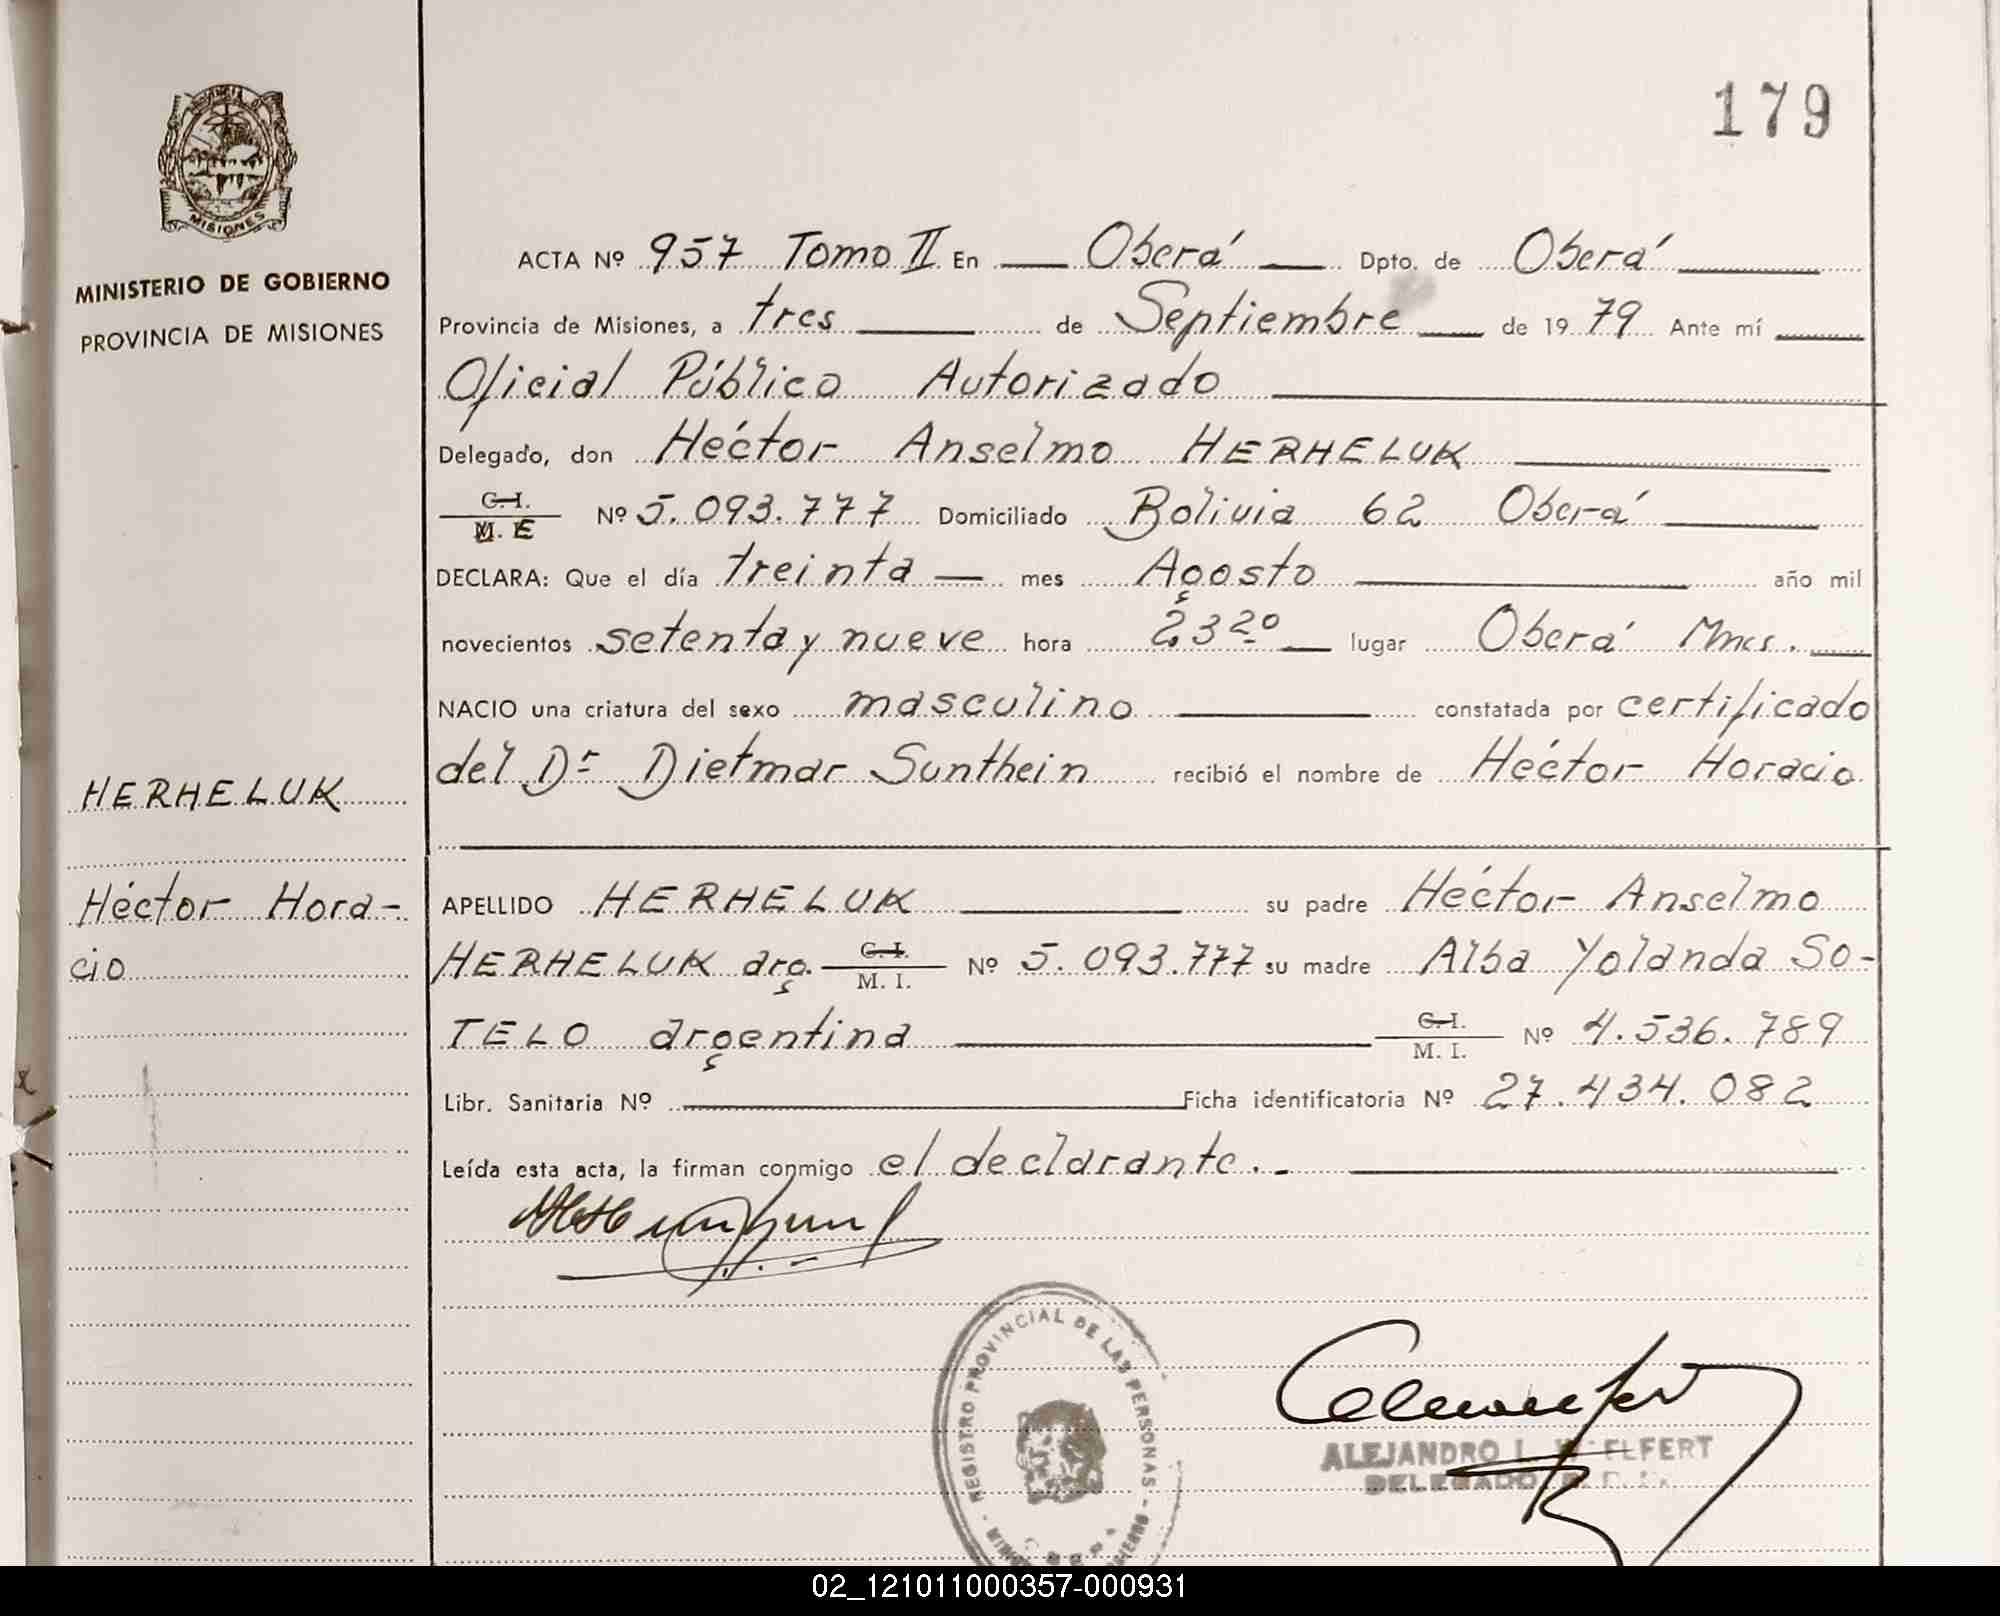 179
PROVINCIA DE
MISIONES
MINISTERIO DE GOBIERNO
PROVINCIA DE MISIONES
ACTA Nº 957 Tomo II En Oberá Dpto. de Oberá
Provincia de Misiones, a tres de Septiembre de 1979 Ante mí
Oficial Público Autorizado
Delegado, don Héctor Anselmo HERHELUK
C. I.
M. E Nº 5.093.777 Domiciliado Bolivia 62 Oberá
DECLARA: Que el día treinta mes Agosto año mil
novecientos setenta y nueve hora 23 20 lugar Oberá Mnes.
NACIO una criatura del sexo masculino constatada por certificado
del Dr Dietmar Sunthein recibió el nombre de Héctor Horacio
HERHELUK
Héctor Hora-
cio
APELLIDO HERHELUK su padre Héctor Anselmo
HERHELUK arg. C. I. M. I. Nº 5.093.777 su madre Alba Yolanda SO-
TELO argentina C. I. M. I. Nº 4.536.789
Libr. Sanitaria Nº Ficha identificatoria Nº 27.434.082
Leída esta acta, la firman conmigo el declarante.
REGISTRO PROVINCIAL DE LAS PERSONAS
ALEJANDRO L.
DELEGADO
02_121011000357-000931